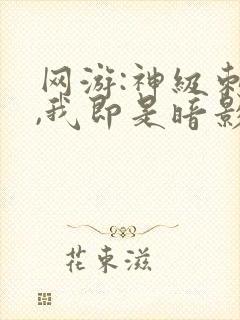 网游:神级刺
,我即是暗影
花東滋